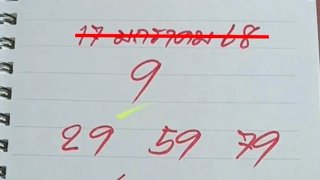 17 มกราคม 68
9
29 59 79